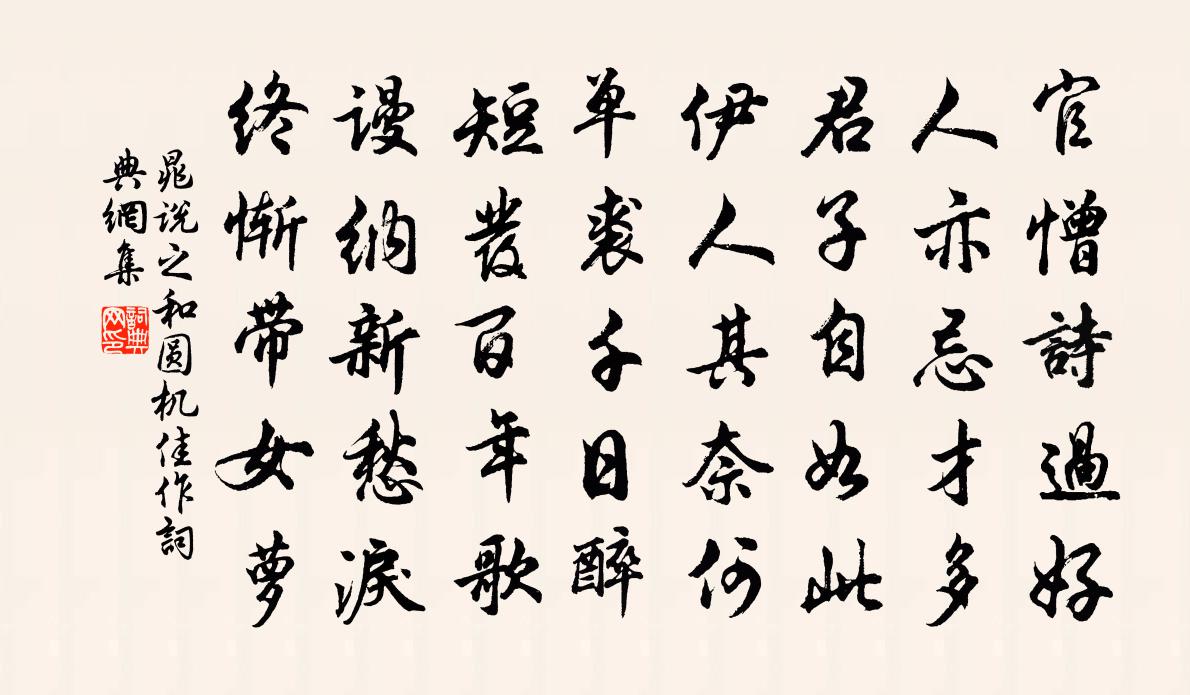 官憎詩過好
人亦忌才多
君子自如此
伊人其奈何
单裘千日醉
短发百年歌
谩纳新愁淚
终惭带女萝
晁说之和圆机佳作詞
典網集
詞典网印